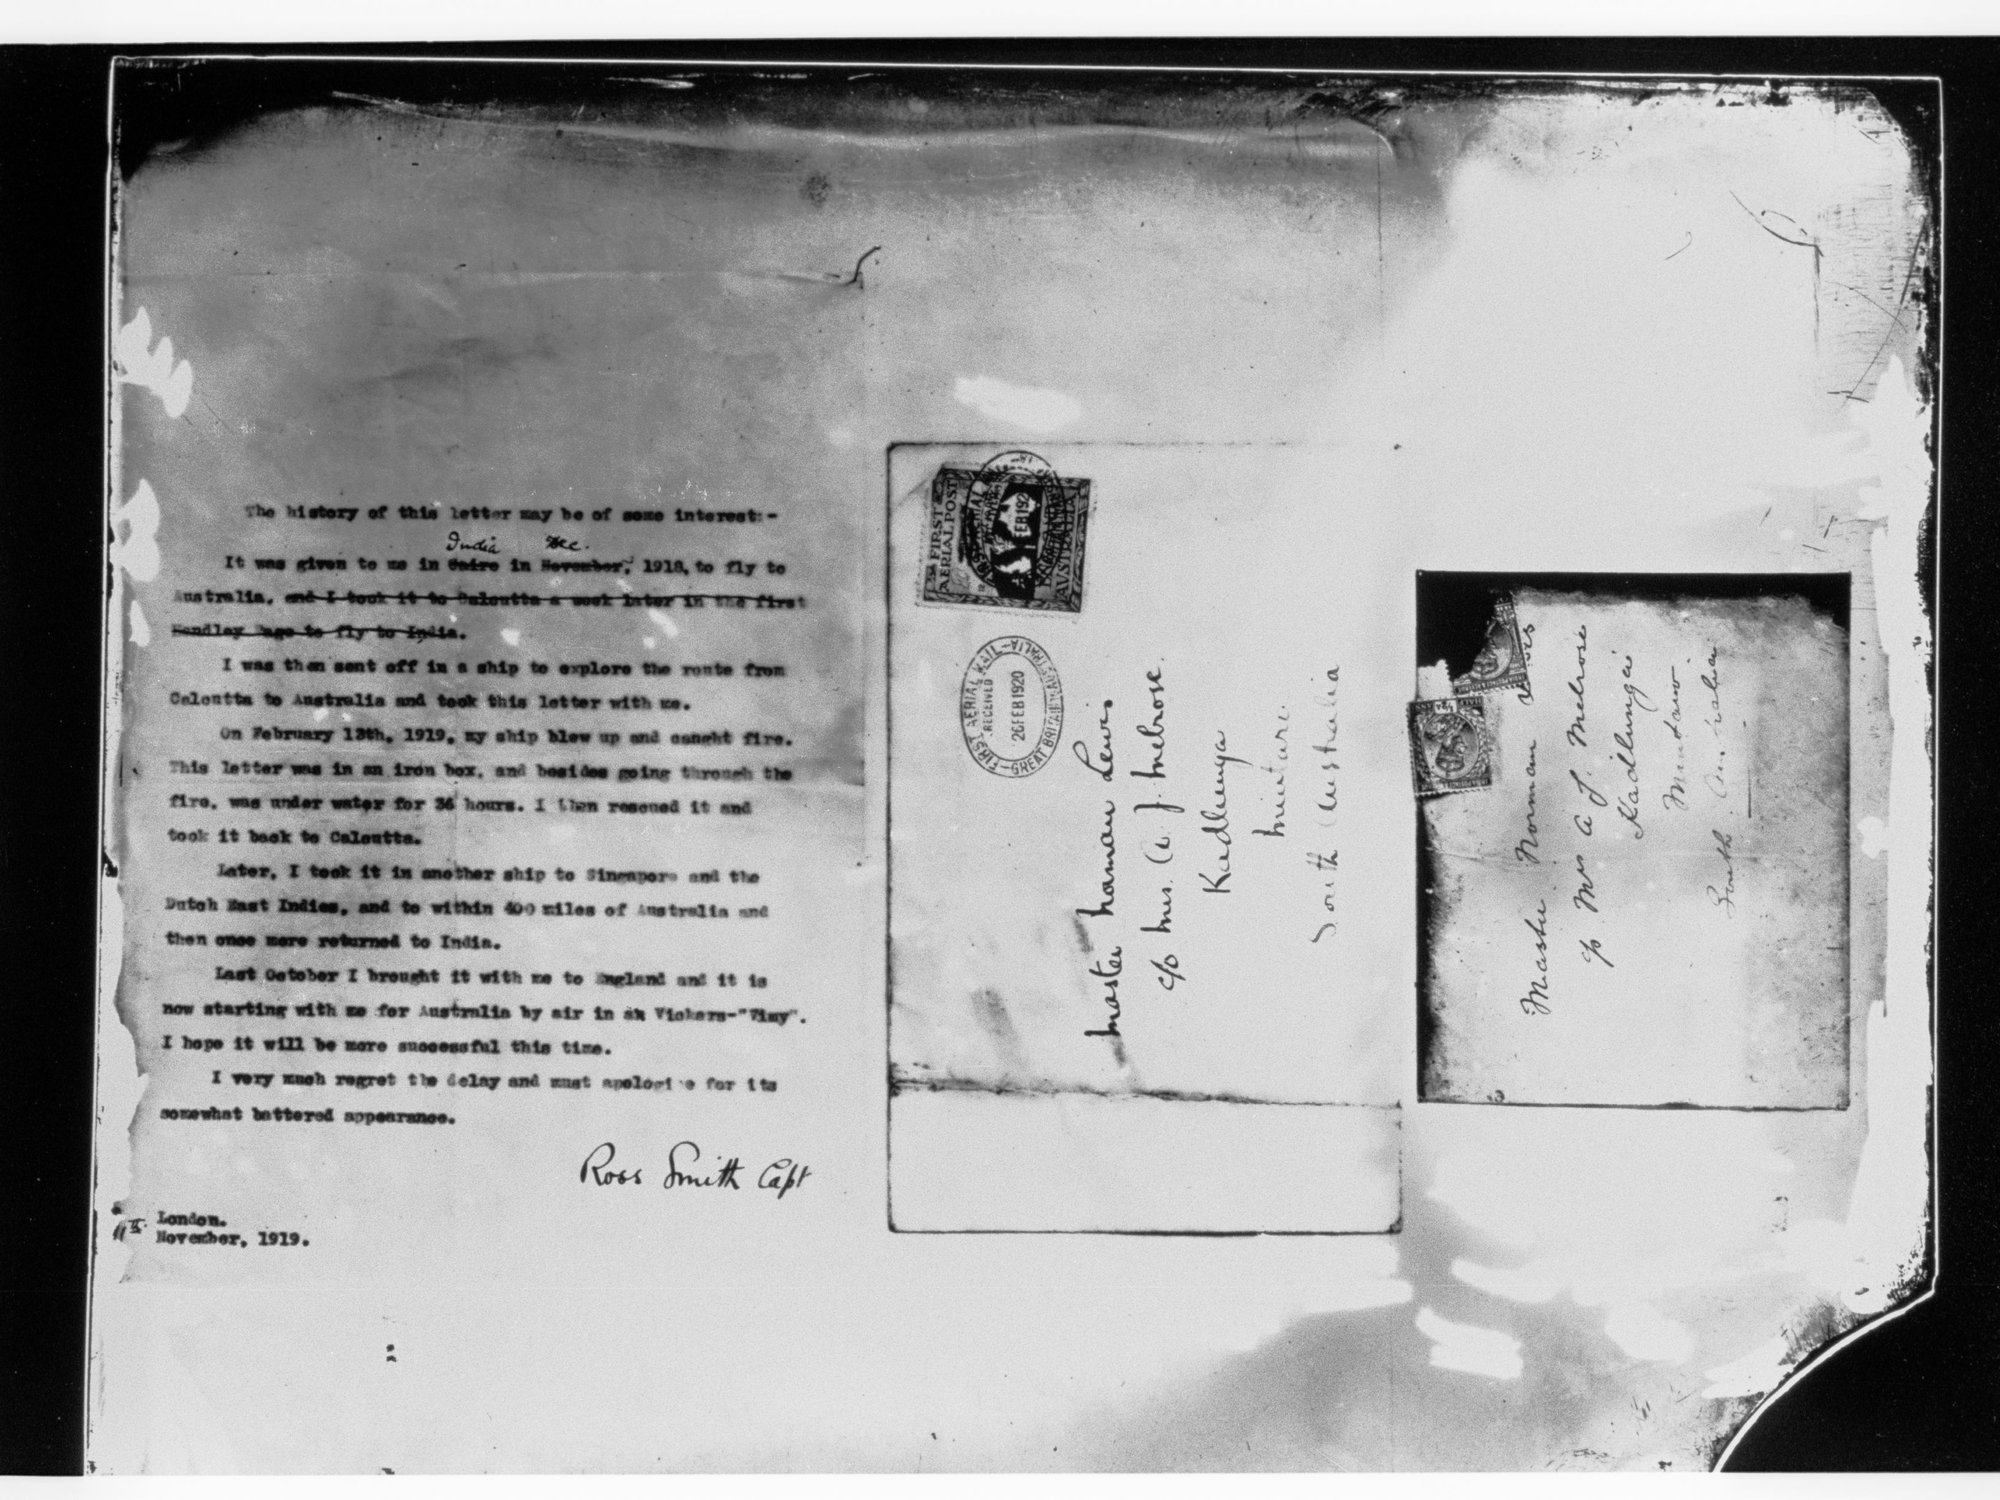 The history of this letter may be of some interest:-
India Dec.
It was given to me in Cairo in November, 1918, to fly to
Australia, and I took it to Calcutta a week later in the first
Handley Page to fly to India.
I was then sent off in a ship to explore the route from
Calcutta to Australia and took this letter with me.
On February 13th, 1919, my ship blew up and caught fire.
This letter was in an iron box, and besides going through the
fire, was under water for 36 hours. I then rescued it and
took it back to Calcutta.
Later, I took it in another ship to Singapore and the
Dutch East Indies, and to within 400 miles of Australia and
then once more returned to India.
Last October I brought it with me to England and it is
now starting with me for Australia by air in a Vickers-"Vimy".
I hope it will be more successful this time.
I very much regret the delay and must apologise for its
somewhat battered appearance.
Ross Smith Capt
London.
November, 1919.
FIRST
AERIAL POST
AUSTRALIA
FEB 192
FIRST AERIAL MAIL
RECEIVED
26 FEB 1920
GREAT BRITAIN-AUSTRALIA
Master Norman Lewis
c/o Mrs. A J. Melrose.
Kadlunga
Mintaro.
South Australia
Master Norman
c/o Mrs A J. Melrose
Kadlunga
Mintaro
South Australia